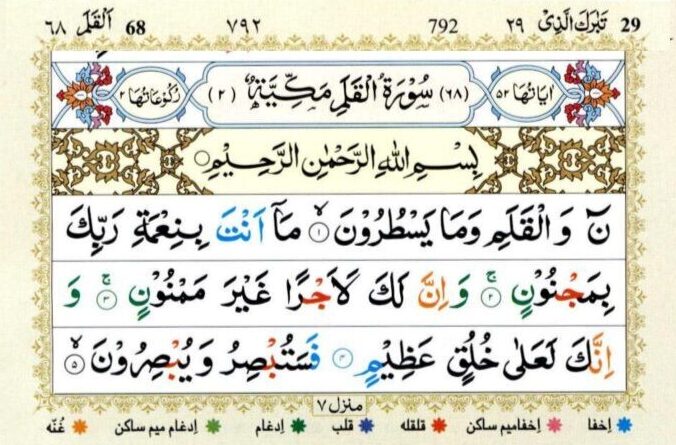 29 تَبٰرَكَ الَّذِىْ ٢٩ 792 ٧٩٢ 68 اَلْقَلَم ٦٨
اٰيَاتُهَا ٥٢ (٦٨) سُوْرَةُ الْقَلَمِ مَكِّيَّةٌ (٢) رُكُوْعَاتُهَا ٢
بِسْمِ اللهِ الرَّحْمٰنِ الرَّحِيْمِ
نٓ وَ الْقَلَمِ وَمَا يَسْطُرُوْنَ ۙ﴿١﴾ مَاۤ اَنْتَ بِنِعْمَةِ رَبِّكَ
بِمَجْنُوْنٍ ۚ﴿٢﴾ وَاِنَّ لَكَ لَاَجْرًا غَيْرَ مَمْنُوْنٍ ۚ﴿٣﴾ وَ
اِنَّكَ لَعَلٰى خُلُقٍ عَظِيْمٍ ﴿٤﴾ فَسَتُبْصِرُ وَيُبْصِرُوْنَ ۙ﴿٥﴾
منزل ٧
اِخفا اِخفامیم ساکن قلقله قلب اِدغام اِدغام میم ساکن غُنّه